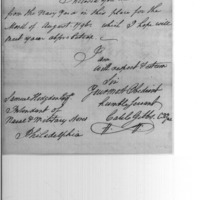 from the Navy Yard in this place for the
Month of August 1796 which I hope will
meet your approbation.
I am
with respect & esteem
Sir
Your most Obedient
humble Servant
Caleb Gibbs
Samuel Hodgdon Esqr
Intendant of
Naval & Military Stores
Philadelphia